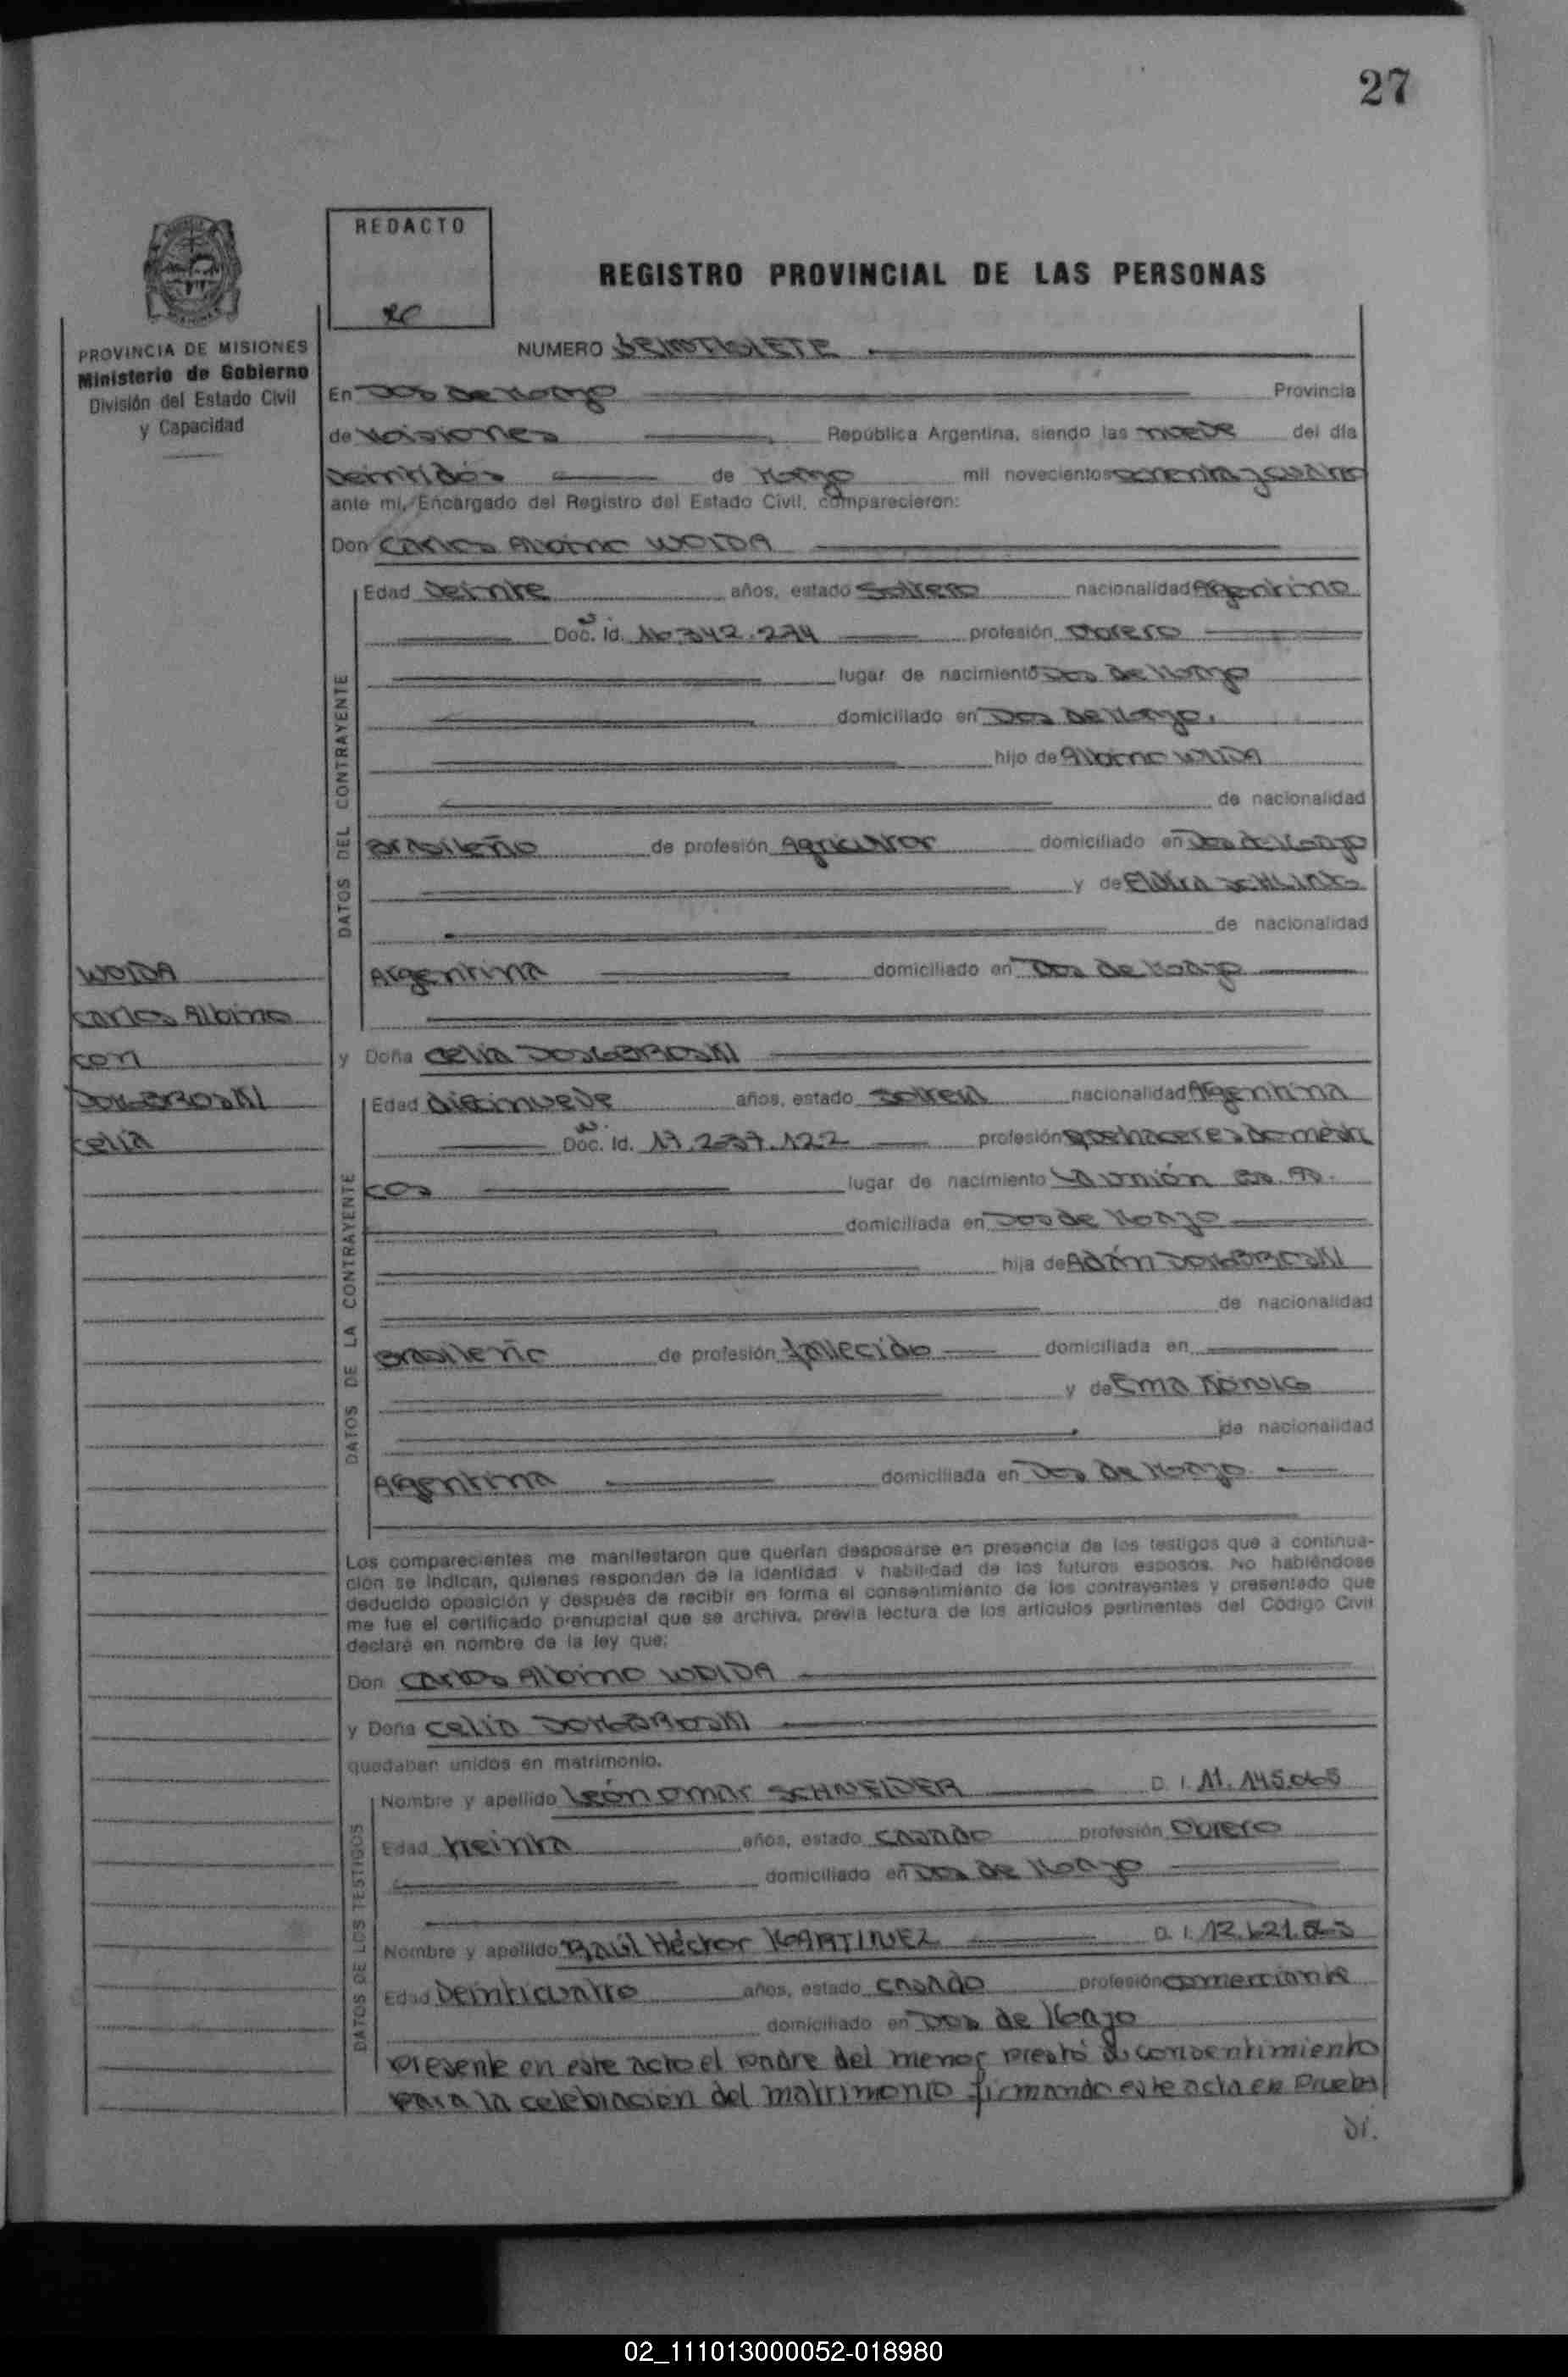 27
REDACTO
REGISTRO PROVINCIAL DE LAS PERSONAS
PROVINCIA DE MISIONES
Ministerio de Gobierno
División del Estado Civil
y Capacidad
NUMERO VEINTISIETE
En Dos de Mayo Provincia
de Misiones República Argentina, siendo las nueve del día
veintidós de Mayo mil novecientos y cuatro
ante mí, Encargado del Registro del Estado Civil, comparecieron:
Don Carlos Albino WOIDA
DATOS DEL CONTRAYENTE
Edad veinte años, estado Soltero nacionalidad Argentino
Doc. Id. 16.342.274 profesión Obrero
lugar de nacimiento Dos de Mayo
domiciliado en Dos de Mayo.
hijo de Albino WOIDA
de nacionalidad
Brasileño de profesión Agricultor domiciliado en Dos de Mayo
y de
de nacionalidad
Argentina domiciliado en Dos de Mayo
WOIDA
Carlos Albino
con
Celia
y Doña Celia
DATOS DE LA CONTRAYENTE
Edad diecinueve años, estado Soltera nacionalidad Argentina
Doc. Id. 17.237.122 profesión quehaceres domésti
cos lugar de nacimiento La Unión
domiciliada en Dos de Mayo
hija de Adán
de nacionalidad
Brasileño de profesión fallecido domiciliada en
y de Ema
de nacionalidad
Argentina domiciliada en Dos de Mayo
Los comparecientes me manifestaron que querían desposarse en presencia de los testigos que a continua-
ción se indican, quienes responden de la identidad y habilidad de los futuros esposos. No habiéndose
deducido oposición y después de recibir en forma el consentimiento de los contrayentes y presentado que
me fue el certificado prenupcial que se archiva, previa lectura de los artículos pertinentes del Código Civil
declaré en nombre de la ley que:
Don Carlos Albino WOIDA
y Doña Celia
quedaban unidos en matrimonio.
DATOS DE LOS TESTIGOS
Nombre y apellido León Omar SCHNEIDER D. I. 11.145.065
Edad treinta años, estado casado profesión Obrero
domiciliado en Dos de Mayo
Nombre y apellido Raúl Héctor MARTINEZ D. I. 12.621.
Edad veinticuatro años, estado casado profesión comerciante
domiciliado en Dos de Mayo
Presente en este acto el padre del menor prestó su consentimiento
para la celebracion del matrimonio firmando este acta en Prueba
02_111013000052-018980